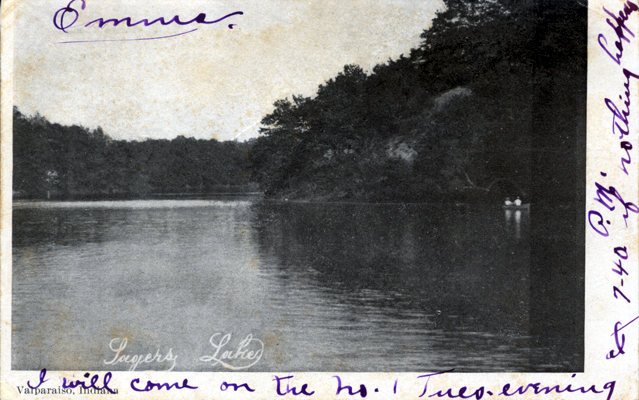 Emma.
Sagers Lake
Valparaiso, Indiana
I will come on the No. 1 Tues. evening
at 7-40 P.M.
if nothing happens